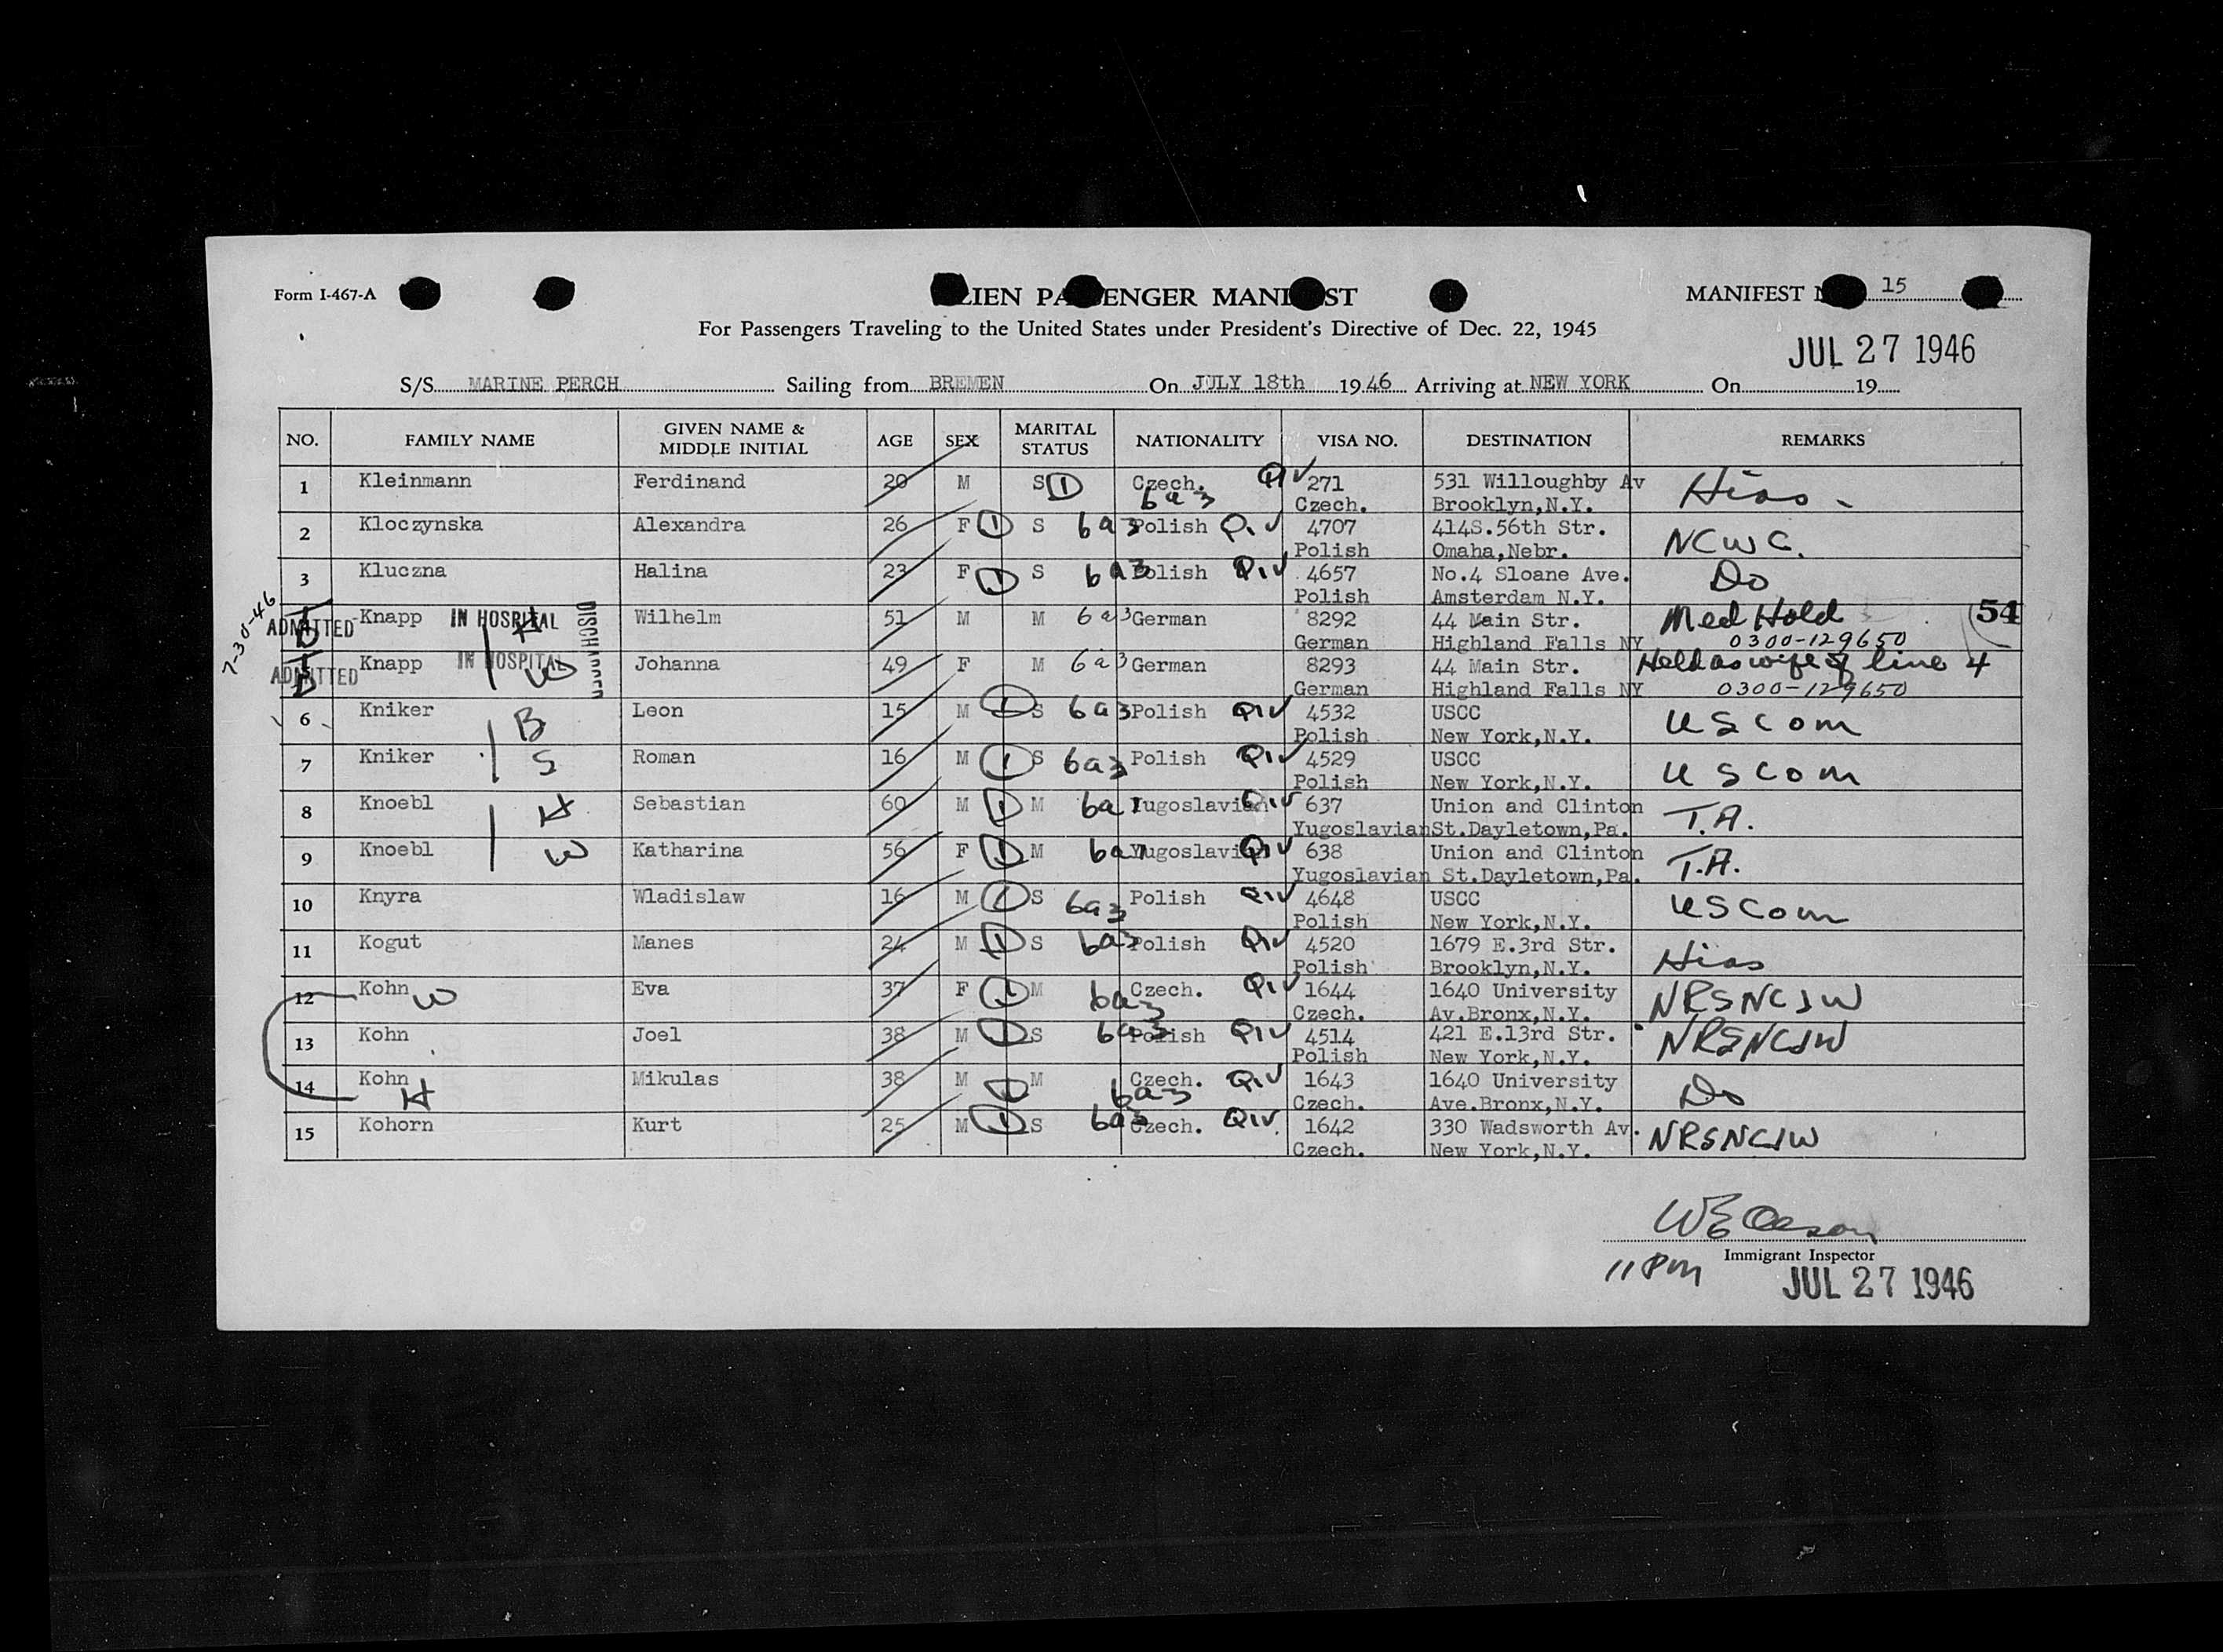 Form I-467-A
LIEN PA ENGER MANI ST
MANIFEST N 15
For Passengers Traveling to the United States under President's Directive of Dec. 22, 1945
JUL 27 1946
S/S MARINE PERCH Sailing from BREMEN On JULY 18th 1946 Arriving at NEW YORK On 19
NO. FAMILY NAME GIVEN NAME & MIDDLE INITIAL AGE SEX MARITAL STATUS NATIONALITY VISA NO. DESTINATION REMARKS
1 Kleinmann Ferdinand 20 M S 1 Czech. QIV 271 531 Willoughby Av Hias -
6a3 Czech. Brooklyn,N.Y.
2 Kloczynska Alexandra 26 F 1 S 6a3 Polish QIV 4707 414S.56th Str. NCWC.
Polish Omaha,Nebr.
3 Kluczna Halina 23 F 1 S 6a3 Polish QIV 4657 No.4 Sloane Ave. Do
Polish Amsterdam N.Y.
7-30-46
ADMITTED Knapp IN HOSPITAL H DISCHARGED Wilhelm 51 M M 6a3 German 8292 44 Main Str. Med Hold 54
German Highland Falls NY 0300-129650
ADMITTED Knapp IN HOSPITAL W Johanna 49 F M 6a3 German 8293 44 Main Str. Held as wife of line 4
German Highland Falls NY 0300-129650
6 Kniker B Leon 15 M 1 S 6a3 Polish QIV 4532 USCC US Com
Polish New York,N.Y.
7 Kniker S Roman 16 M 1 S 6a3 Polish QIV 4529 USCC US Com
Polish New York,N.Y.
8 Knoebl H Sebastian 60 M 1 M 6a Yugoslavian QIV 637 Union and Clinton T.A.
Yugoslavian St.Dayletown,Pa.
9 Knoebl W Katharina 56 F 1 M 6a Yugoslavian QIV 638 Union and Clinton T.A.
Yugoslavian St.Dayletown,Pa.
10 Knyra Wladislaw 16 M 1 S 6a3 Polish QIV 4648 USCC US Com
Polish New York,N.Y.
11 Kogut Manes 24 M 1 S 6a3 Polish QIV 4520 1679 E.3rd Str. Hias
Polish Brooklyn,N.Y.
12 Kohn W Eva 37 F 1 M 6a3 Czech. QIV 1644 1640 University NRSNCJW
Czech. Av.Bronx,N.Y.
13 Kohn Joel 38 M 1 S 6a3 Polish QIV 4514 421 E.13rd Str. NRSNCJW
Polish New York,N.Y.
14 Kohn H Mikulas 38 M 1 M 6a3 Czech. QIV 1643 1640 University Do
Czech. Ave.Bronx,N.Y.
15 Kohorn Kurt 25 M 1 S 6a3 Czech. QIV 1642 330 Wadsworth Av. NRSNCJW
Czech. New York,N.Y.
WE Olsson
Immigrant Inspector
11 PM JUL 27 1946